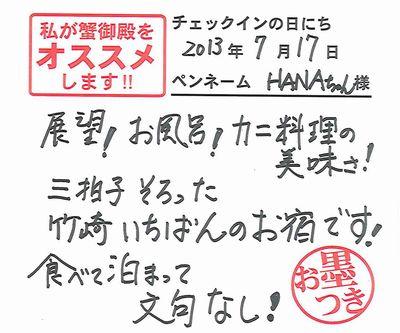 私が蟹御殿を
オススメ
します!!
チェックインの日にち
2013年7月17日
ペンネーム HANAちゃん様
展望!お風呂!カニ料理の
美味さ!
三拍子そろった
竹崎いちばんのお宿です!
食べて泊まって
文句なし!
お墨
つき